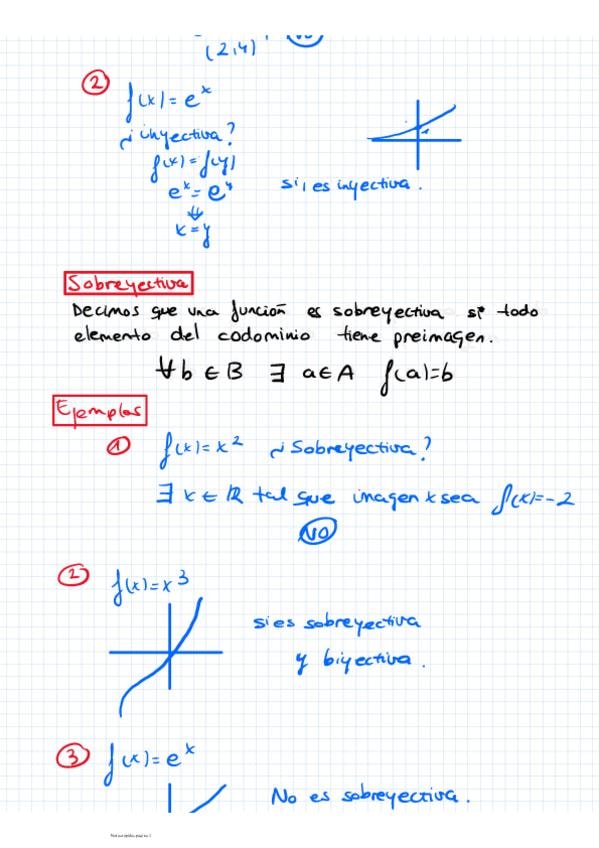 (2,4)
② f(x) = e^x
¿inyectiva?
f(x) = f(y)
e^x = e^y
sí, es inyectiva.
⇓
x = y
Sobreyectiva
Decimos que una función es sobreyectiva si todo
elemento del codominio tiene preimagen.
∀b ∈ B ∃ a ∈ A f(a)=b
Ejemplos
① f(x) = x² ¿Sobreyectiva?
∃ x ∈ ℝ tal que imagen x sea f(x)=-2
NO
② f(x) = x³
si es sobreyectiva
y biyectiva.
③ f(x) = e^x
No es sobreyectiva.